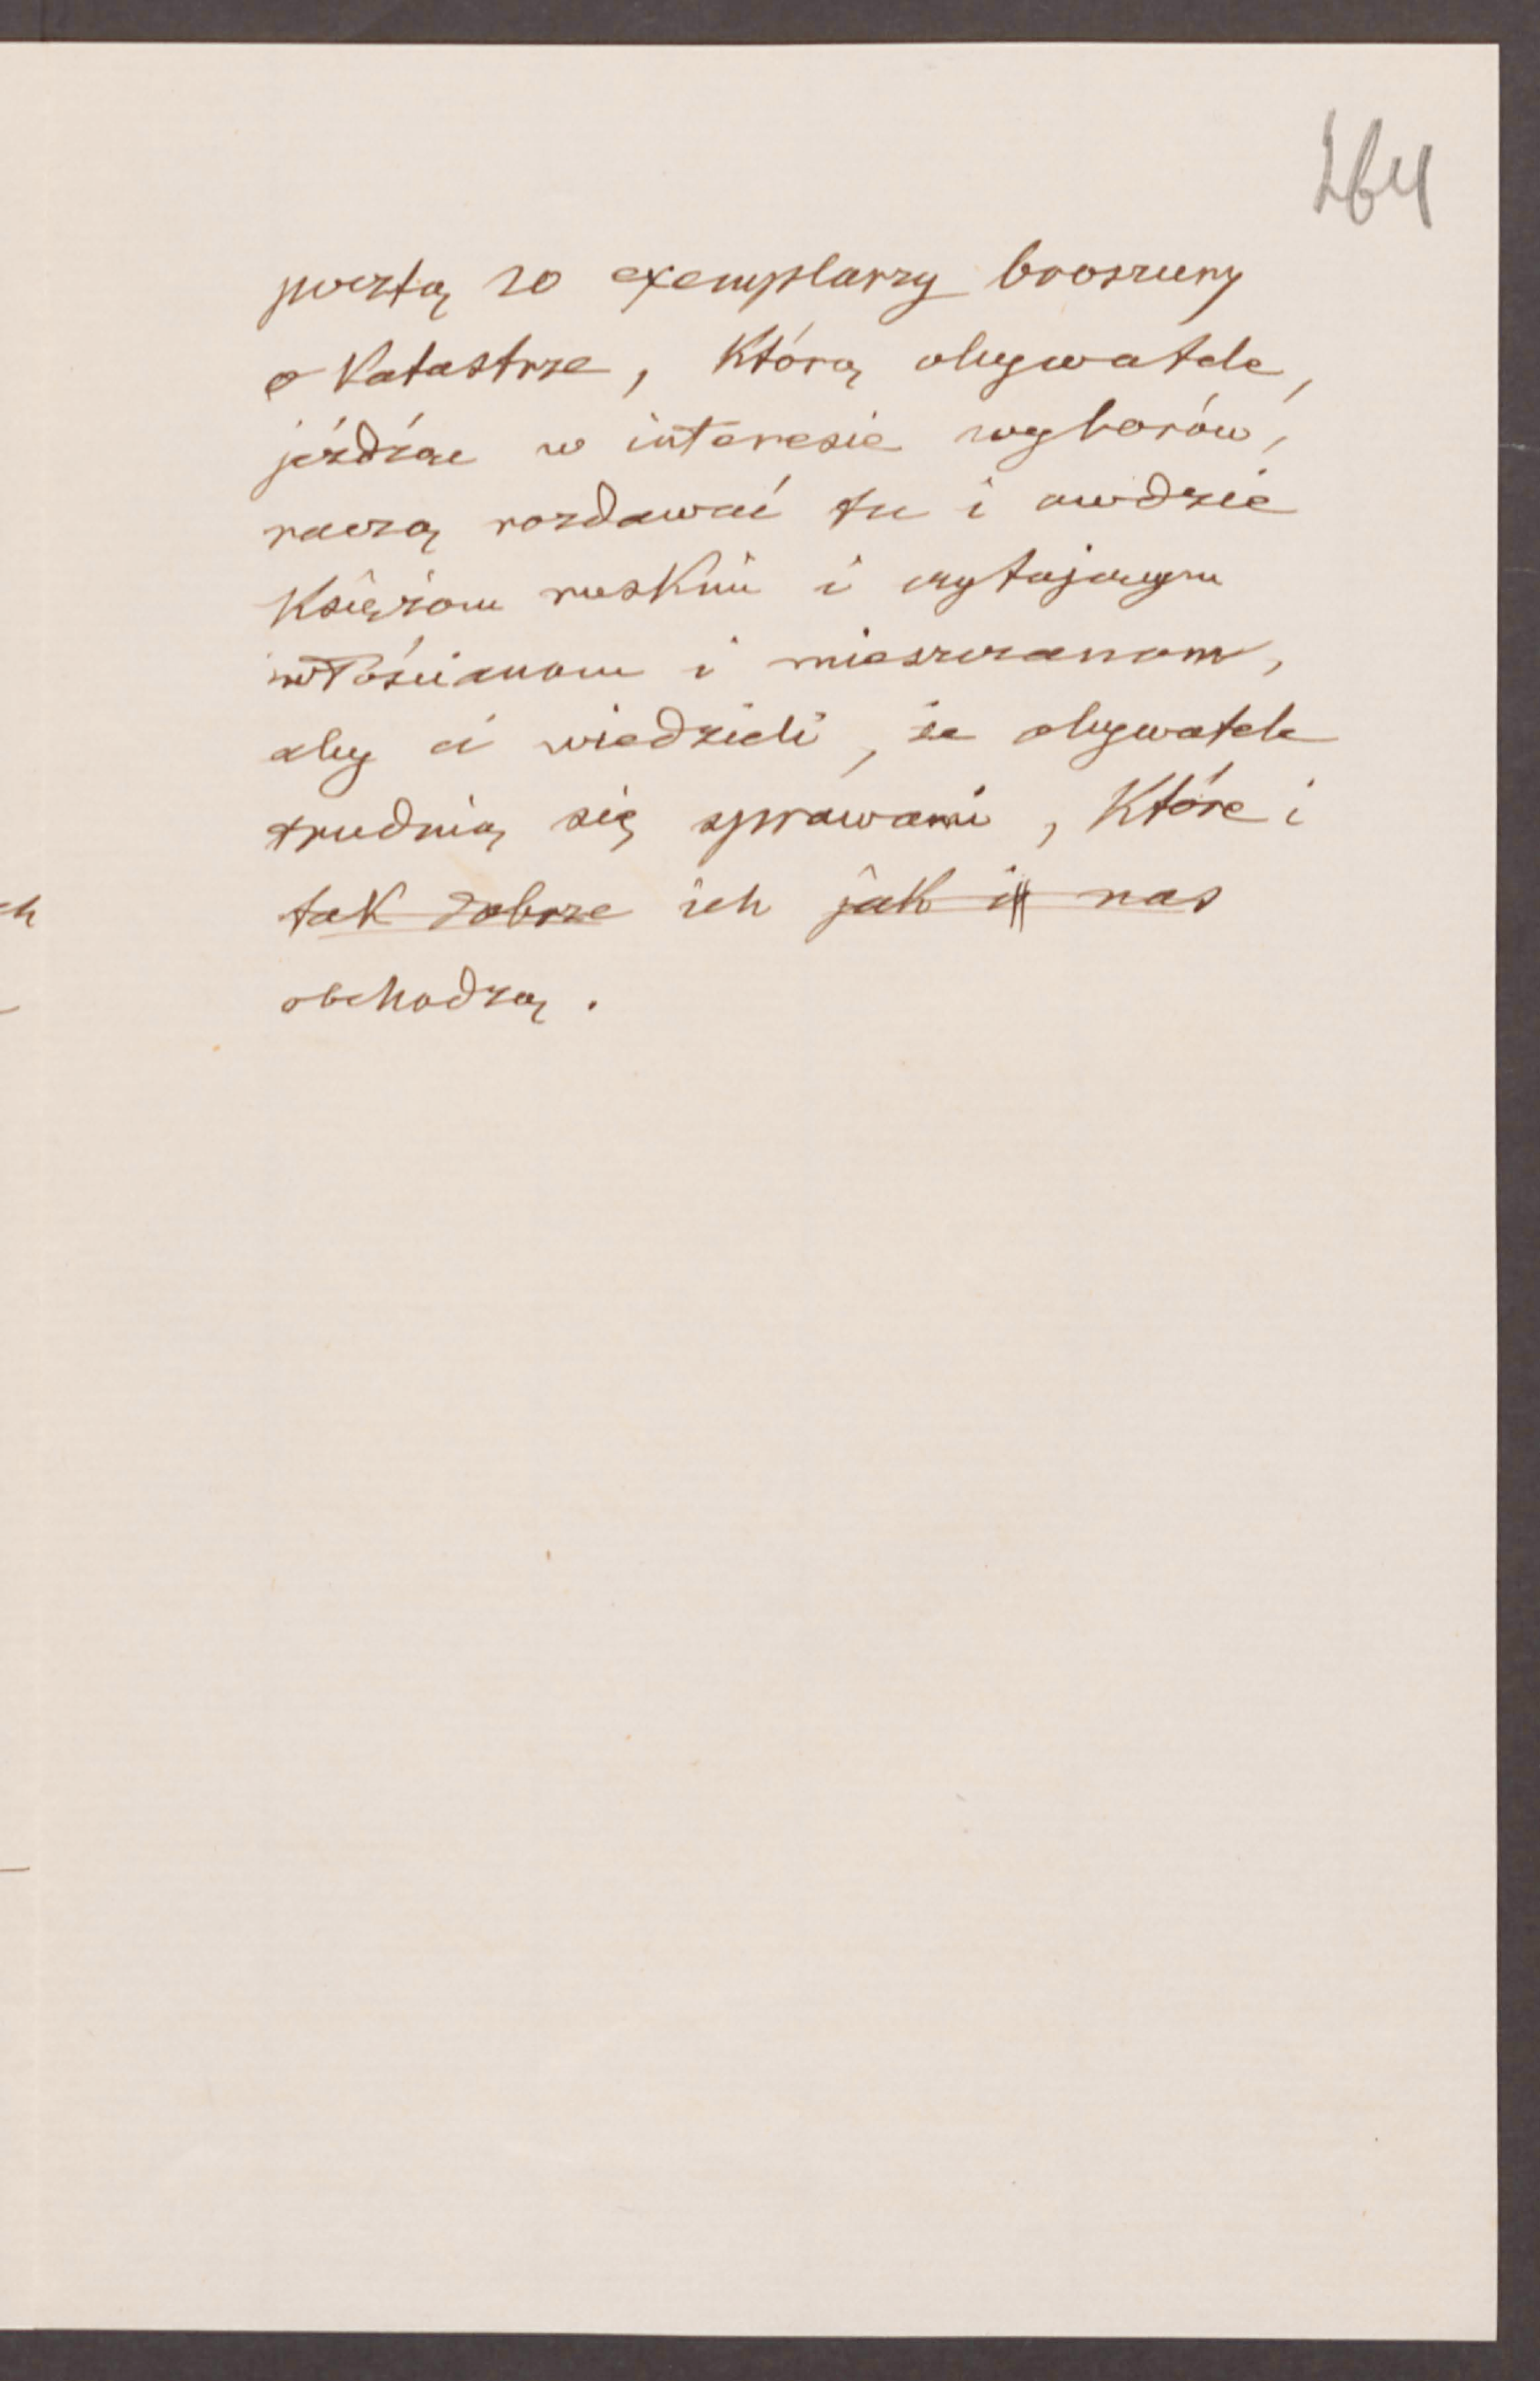 264
pocztą 20 exemplarzy broszury
o Katastrze, Którą obywatele,
jeżdżąc w interesie wyborów,
raczą rozdawać tu i owdzie
Księżom ruskim i czytającym
włościanom i mieszczanom,
aby ci wiedzieli, że obywatele
trudnią się sprawami, Które i
tak dobrze ich jak i nas
obchodzą.